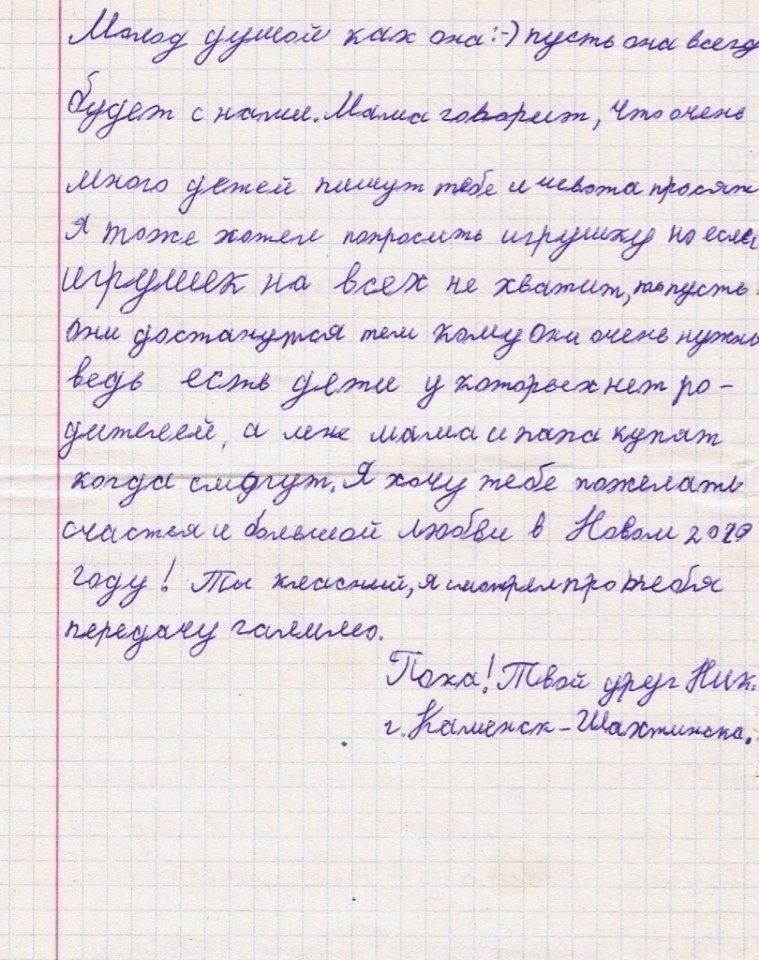 Молод душой как она :-) пусть она всегд
будет с нами. Мама говорит, что очень
много детей пишут тебе и чевота просят
Я тоже хотел попросить игрушку но если
игрушек на всех не хватит, то пусть
они достанутся тем кому они очень нужны
ведь есть дети у которых нет ро-
дителей, а мне мама и папа купят
когда смогут. Я хочу тебе пожелать
счастья и большой любви в Новом
году! Ты класный, я смотрел про тебя
передачу галилео.
Пока! Твой друг Ник.
г. Каменск-Шахтинск.